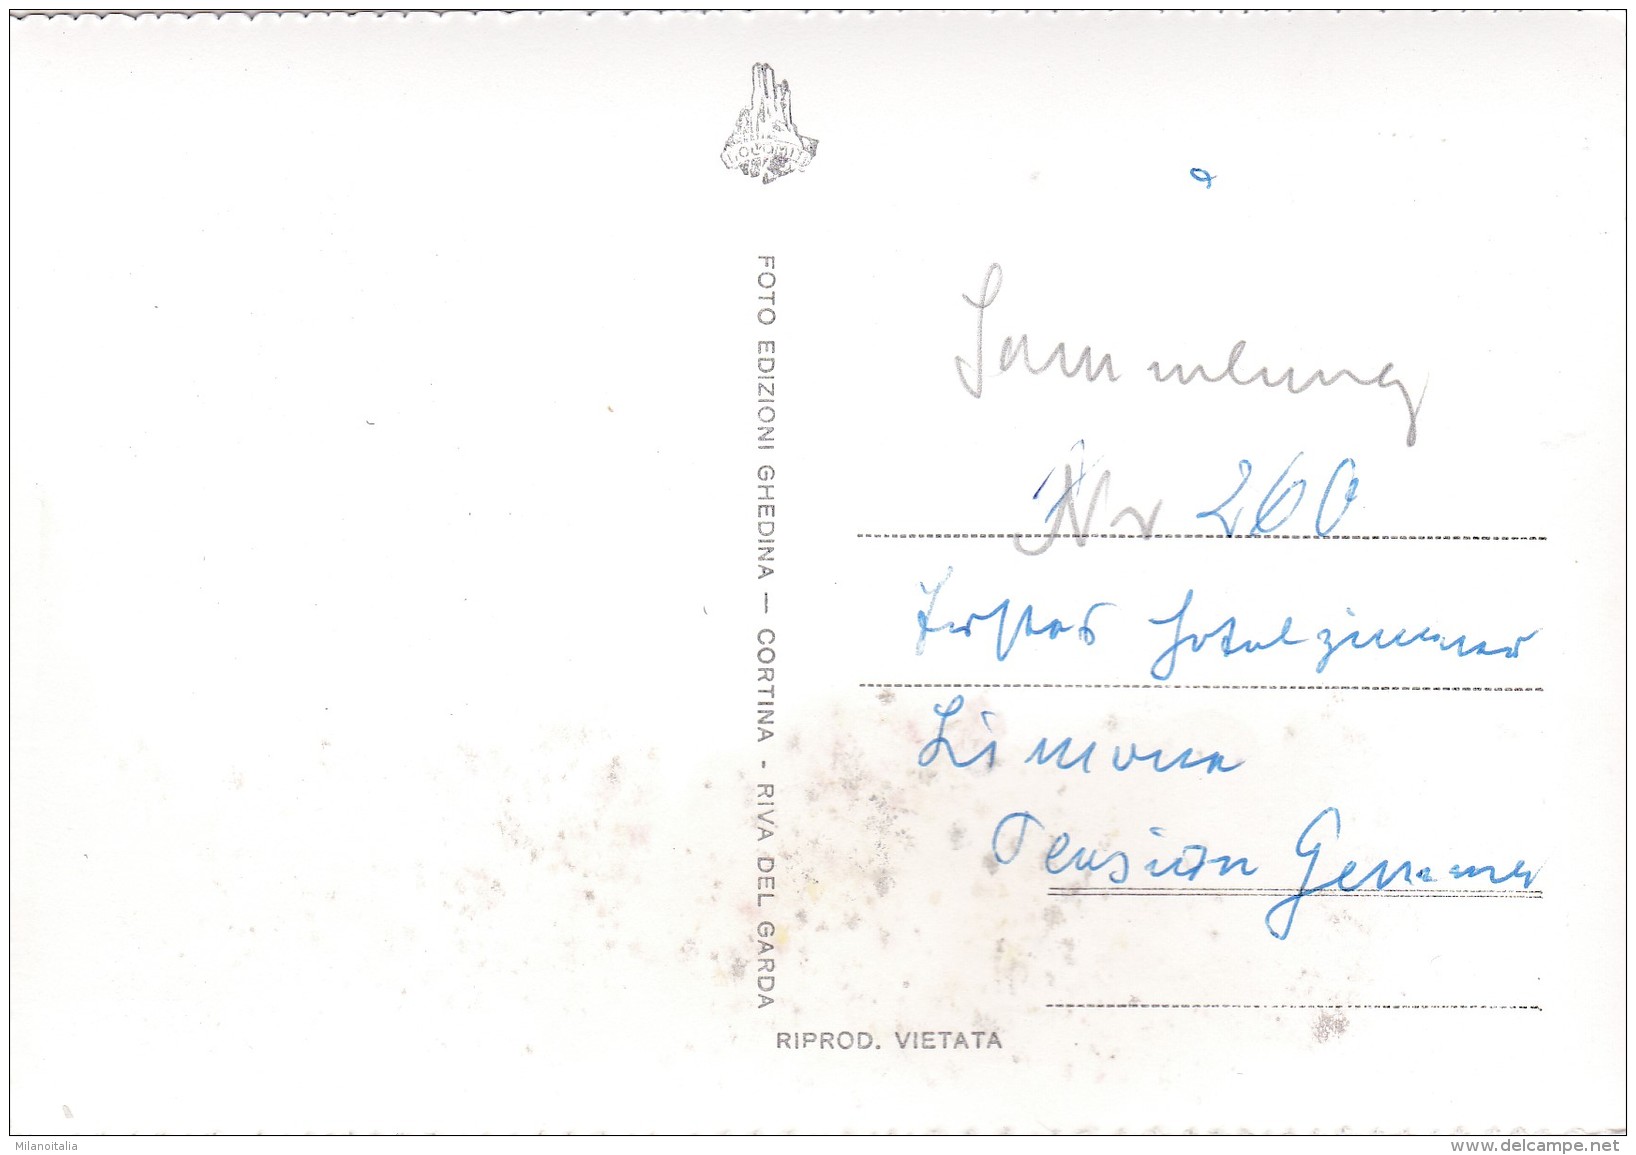 DOLOMITI
Sammlung
Nr 260
Erstes Hotelzimmer
Limone
Pension Gemma
FOTO EDIZIONI GHEDINA — CORTINA - RIVA DEL GARDA
RIPROD. VIETATA
Milanoitalia
www.delcampe.net